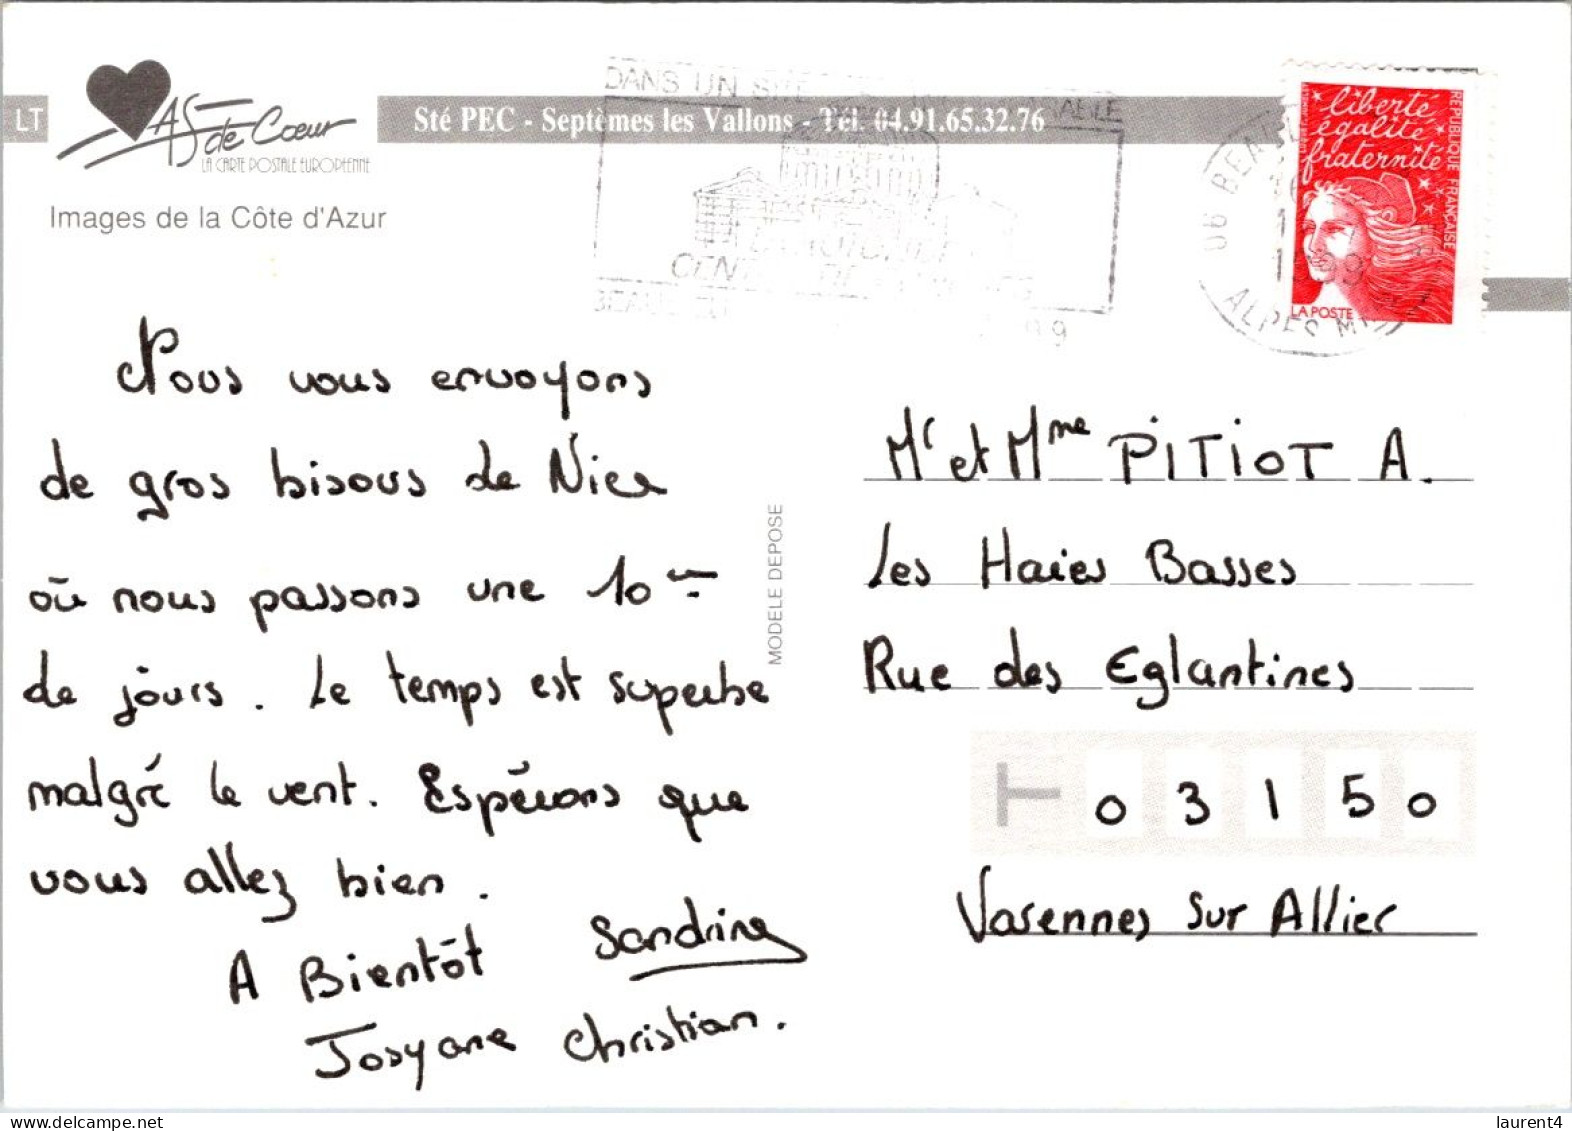 LT
AS de Cœur
LA CARTE POSTALE EUROPÉENNE
Sté PEC - Septèmes les Vallons - Tél. 04.91.65.32.76
Images de la Côte d'Azur
DANS UN SITE
BEAULIEU
06 BEAUL
ALPES M
liberté
égalité
fraternité
RÉPUBLIQUE FRANÇAISE
LA POSTE
Nous vous envoyons
de gros bisous de Nice
où nous passons une 10ne
de jours. Le temps est superbe
malgré le vent. Espérons que
vous allez bien.
A Bientôt Sandrine
Josyane Christian.
MODELE DEPOSE
Mr et Mme PITIOT A.
Les Haies Basses
Rue des Eglantines
T 03150
Varennes sur Allier
laurent4